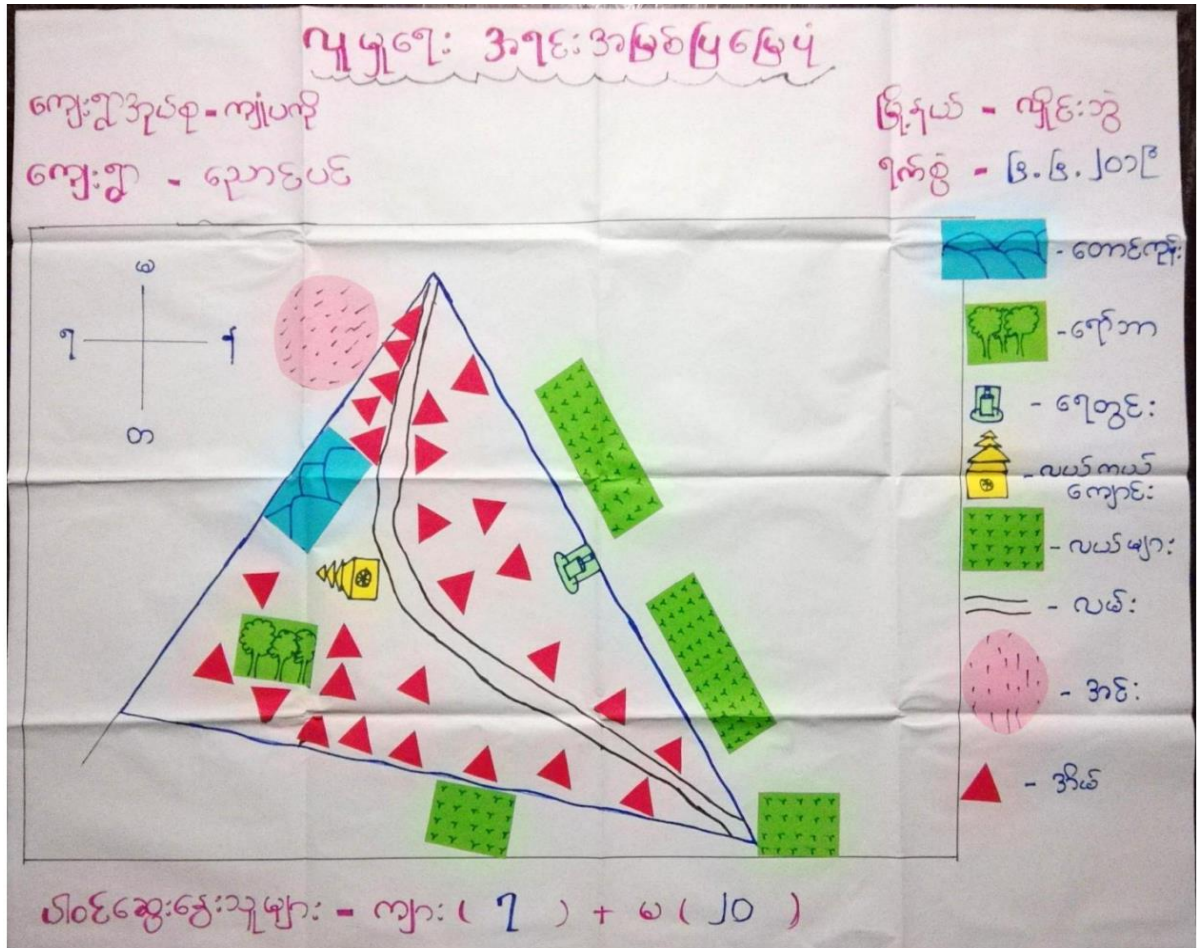 လူမှုရေး အရင်းအမြစ်ပြမြေပုံ
ကျေးရွာအုပ်စု - ကျုံပကို
မြို့နယ် - လှိုင်းဘွဲ
ကျေးရွာ - ညောင်ပင်
ရက်စွဲ - ၆.၆.၂၀၁၆
မ
ရ
န်
တ
- တောင်ကုန်း
- ရော်ဘာ
- ရေတွင်း
- လယ်ကယ်
ကျောင်း
- လယ်များ
- လမ်း
- အင်း
- အိမ်
ပါဝင်ဆွေးနွေးသူများ - ကျား ( ၇ ) + မ ( ၂၀ )